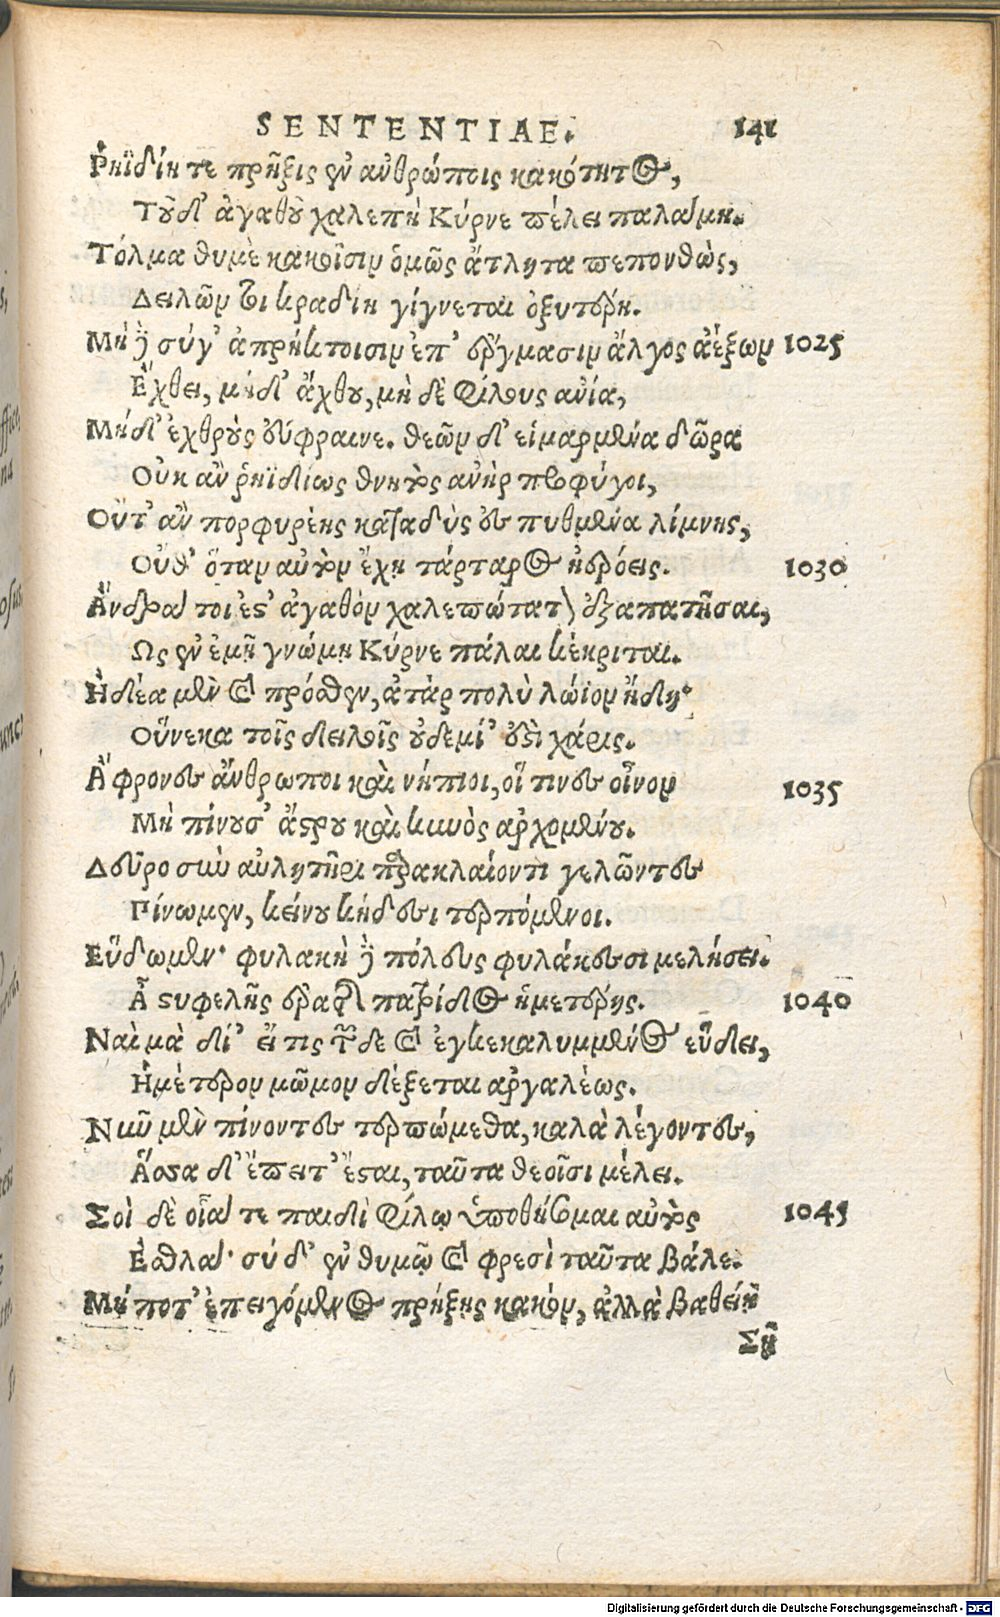 SENTENTIAE. 141
Ῥηϊδίη τε πρῆξις ἐν ἀνθρώποις κακότητος,
Τοῦ δ' ἀγαθοῦ χαλεπὴ Κύρνε πέλει παλάμη.
Τόλμα θυμὲ κακοῖσιν ὁμῶς ἄτλητα πεπονθὼς,
Δειλῶν τι κραδίη γίγνεται ὀξυτέρη.
Μὴ δὲ σύγ' ἀπρήκτοισιν ἐπ' ἔργμασιν ἄλγος ἀέξων 1025
Ἔχθει, μήδ' ἄχθου, μὴ δὲ φίλους ἀνία,
Μήδ' ἐχθροὺς εὔφραινε. θεῶν δ' εἱμαρμένα δῶρα
Οὐκ ἂν ῥηϊδίως θνητὸς ἀνὴρ προφύγοι,
Οὔτ' ἂν πορφυρέης καταδὺς ἐς πυθμένα λίμνης,
Οὔθ' ὅταν αὐτὸν ἔχῃ τάρταρος ἠερόεις. 1030
Ἄνδρα τοι ἐς' ἀγαθὸν χαλεπώτατον ἐξαπατῆσαι,
Ὡς ἐν ἐμῇ γνώμῃ Κύρνε πάλαι κέκριται.
Ἠδέα μὲν καὶ πρόσθεν, ἀτὰρ πολὺ λώϊον ἤδη·
Οὕνεκα τοῖς δειλοῖς οὐδεμί' ἐστὶ χάρις.
Ἄφρονες ἄνθρωποι καὶ νήπιοι, οἵ τινες οἶνον 1035
Μὴ πίνουσ' ἄστρου καὶ κυνὸς ἀρχομένου.
Δεῦρο σὺν αὐλητῆρι παρακλαίοντι γελῶντες
Πίνωμεν, κείνου κήδεσι τερπόμενοι.
Εὕδωμεν· φυλακὴ δὲ πόλευς φυλάκεσσι μελήσει.
Ἀστυφελῆς ἐρατῆς πατρίδος ἡμετέρης. 1040
Ναὶ μὰ δί' εἴ τις τῶν δε καὶ ἐγκεκαλυμμένος εὕδει,
Ἡμέτερον μῶμον δέξεται ἀργαλέως.
Νῦν μὲν πίνοντες τερπώμεθα, καλὰ λέγοντες,
Ἅσσα δ' ἔπειτ' ἔσται, ταῦτα θεοῖσι μέλει.
Σοὶ δὲ οἷά τε παιδὶ φίλῳ ὑποθήσομαι αὐτὸς 1045
Ἐσθλά· σὺ δ' ἐν θυμῷ καὶ φρεσὶ ταῦτα βάλε.
Μή ποτ' ἐπειγόμενος πρήξῃς κακὸν, ἀλλὰ βαθείῃ
Σῇ
Digitalisierung gefördert durch die Deutsche Forschungsgemeinschaft - DFG